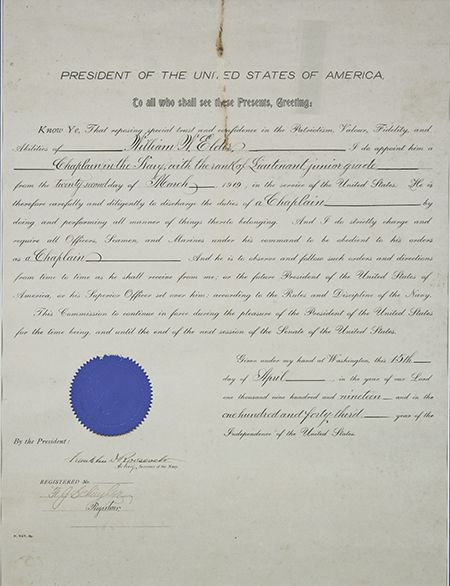 PRESIDENT OF THE UNITED STATES OF AMERICA,
To all who shall see these Presents, Greeting:
Know Ye, That reposing special trust and confidence in the Patriotism, Valour, Fidelity, and
Abilities of William W. Elder I do appoint him a
Chaplain in the Navy, with the rank of Lieutenant, junior grade
from the Twenty second day of March 1919, in the service of the United States. He is
therefore carefully and diligently to discharge the duties of a Chaplain by
doing and performing all manner of things thereto belonging. And I do strictly charge and
require all Officers, Seamen, and Marines under his command to be obedient to his orders
as a Chaplain And he is to observe and follow such orders and directions
from time to time as he shall receive from me; or the future President of the United States of
America, or his Superior Officer set over him; according to the Rules and Discipline of the Navy.
This Commission to continue in force during the pleasure of the President of the United States
for the time being, and until the end of the next session of the Senate of the United States.
Given under my hand at Washington, this 15th
day of April in the year of our Lord
one thousand nine hundred and nineteen and in the
one hundred and forty third year of the
Independence of the United States.
By the President:
Franklin D Roosevelt
Acting Secretary of the Navy.
REGISTERED No.
Registrar.